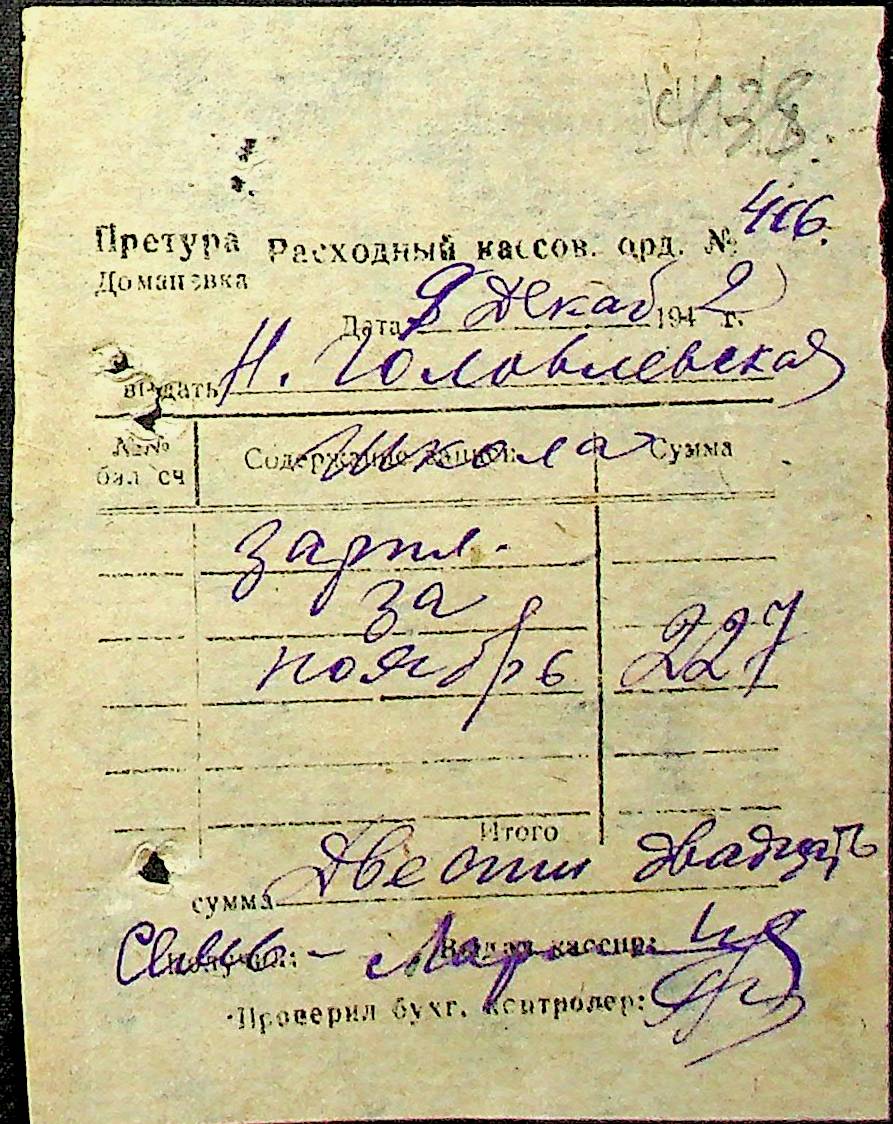 438.
Претура Расходный кассов. орд. № 406.
Домановка
Дата 9 Декаб 1942 г.
выдать Н. Головлевская
Школа
№№ бал сч Содержание записи Сумма
зарпл.
за
ноябрь 227
Итого
сумма Двести двадцать
Семь - Мар
Получил: Выдал кассир:
Проверил бухг. контролер: